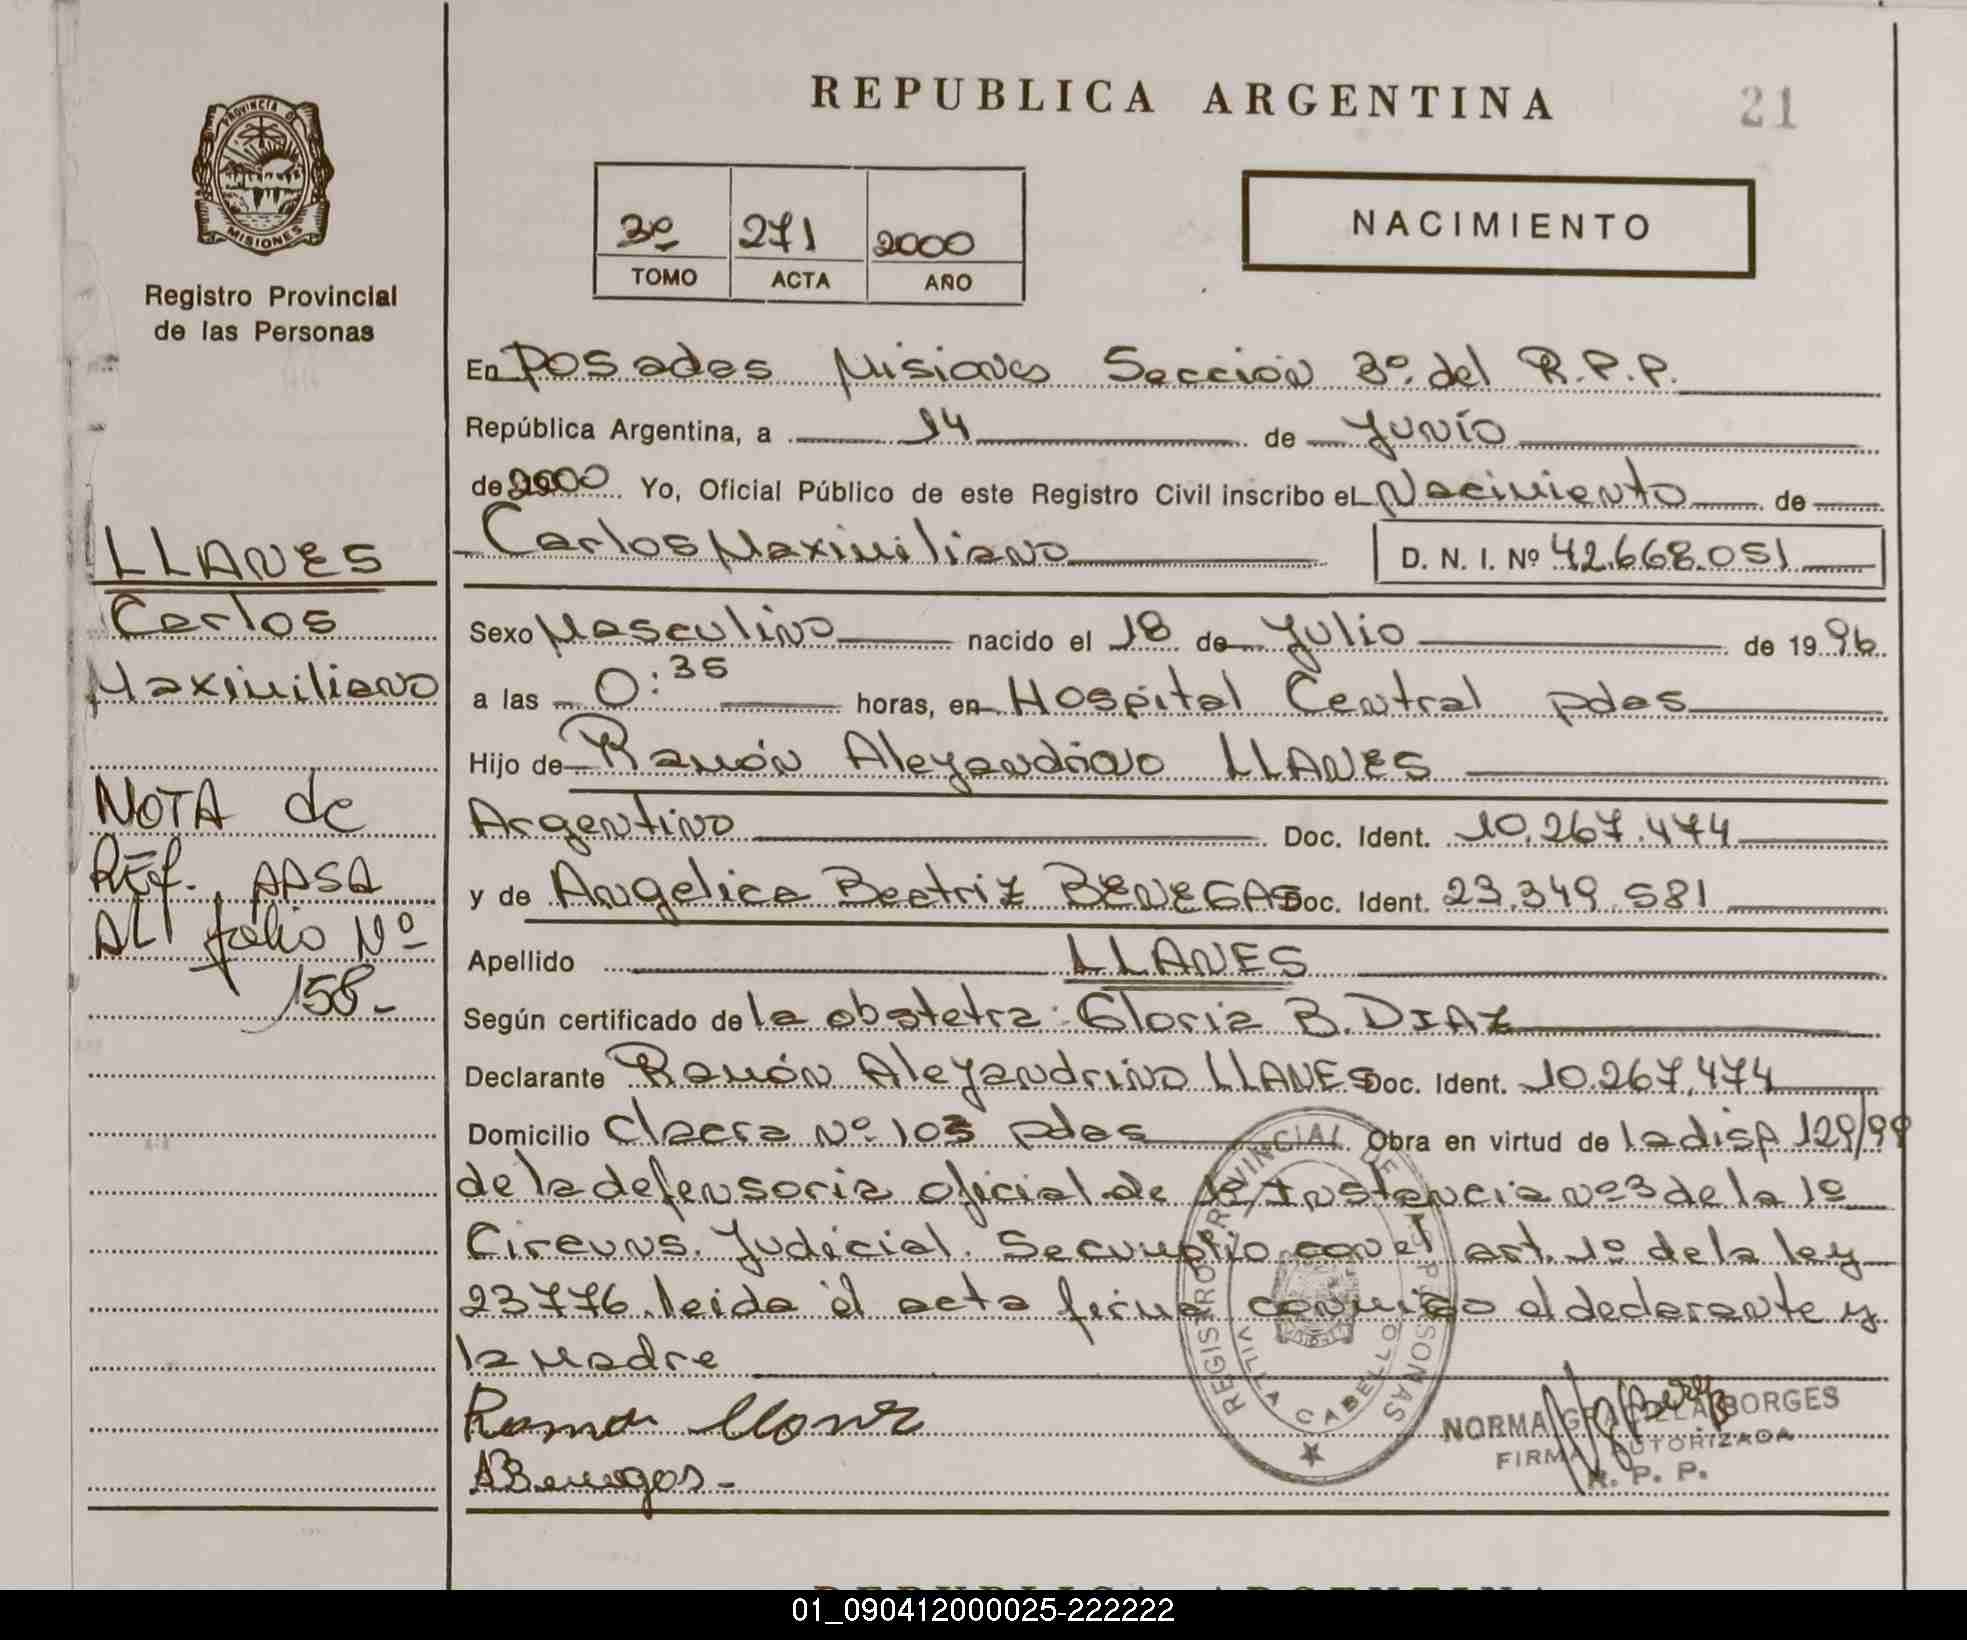 REPUBLICA ARGENTINA
21
PROVINCIA DE
MISIONES
Registro Provincial
de las Personas
3º 271 2000
TOMO ACTA AÑO
NACIMIENTO
En Posadas Misiones Sección 3º. del R.P.P.
República Argentina, a 14 de Junio
de 2000 Yo, Oficial Público de este Registro Civil inscribo el Nacimiento de
Carlos Maximiliano D. N. I. Nº 42.668.051
Sexo Masculino nacido el 18 de Julio de 19 96
a las 0:35 horas, en Hospital Central pdas
Hijo de Ramón Aleyandrino LLANES
Argentino Doc. Ident. 10.267.474
y de Angelica Beatriz BENEGAS Doc. Ident. 23.349.581
Apellido LLANES
Según certificado de la obstetra: Gloria B. DIAZ
Declarante Ramón Aleyandrino LLANES Doc. Ident. 10.267.474
Domicilio Claera Nº 103 pdas Obra en virtud de la disp 129/99
de la defensoria oficial de 1ª Instancia nº 3 de la 1º
Circuns. Judicial. Se cumplio con el art. 1º de la ley
23776. leida el acta firma conmigo el declarante y
la Madre
LLANES
Carlos
Maximiliano
NOTA de
REf. PASA
AL folio Nº
158-
Ramon Llanes
ABenegas-
REGISTRO PROVINCIAL DE LAS PERSONAS
VILLA CABELLO
NORMA GRACIELA BORGES
FIRMA AUTORIZADA
R. P. P.
REPUBLICA ARGENTINA
01_090412000025-222222